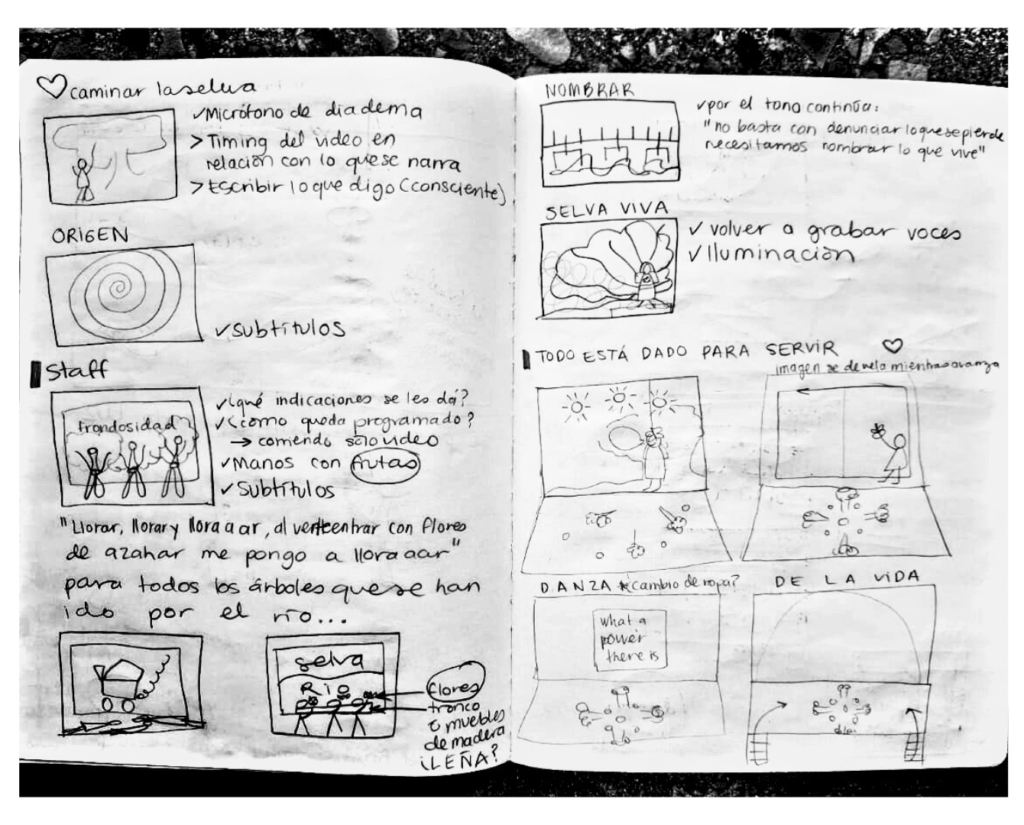 ♡ caminar la selva
✓Micrófono de diadema
> Timing del video en
relación con lo que se narra
> Escribir lo que digo (consciente)
ORIGEN
✓Subtítulos
Staff
frondosidad
✓¿qué indicaciones se les dá?
✓¿cómo queda programado?
→ comiendo sólo video
✓Manos con frutas
✓Subtítulos
"Llorar, llorar y lloraaar, al verte entrar con flores
de azahar me pongo a lloraaar"
para todos los árboles que se han
ido por el río...
selva
RÍO
flores
tronco
o muebles
de madera
¿LEÑA?
NOMBRAR
✓por el tono continúa:
"no basta con denunciar lo que se pierde
necesitamos nombrar lo que vive"
SELVA VIVA
✓ volver a grabar voces
✓ Iluminación
TODO ESTÁ DADO PARA SERVIR ♡
imagen se devela mientras avanza
DANZA *cambio de ropa?
what a
power
there is
DE LA VIDA